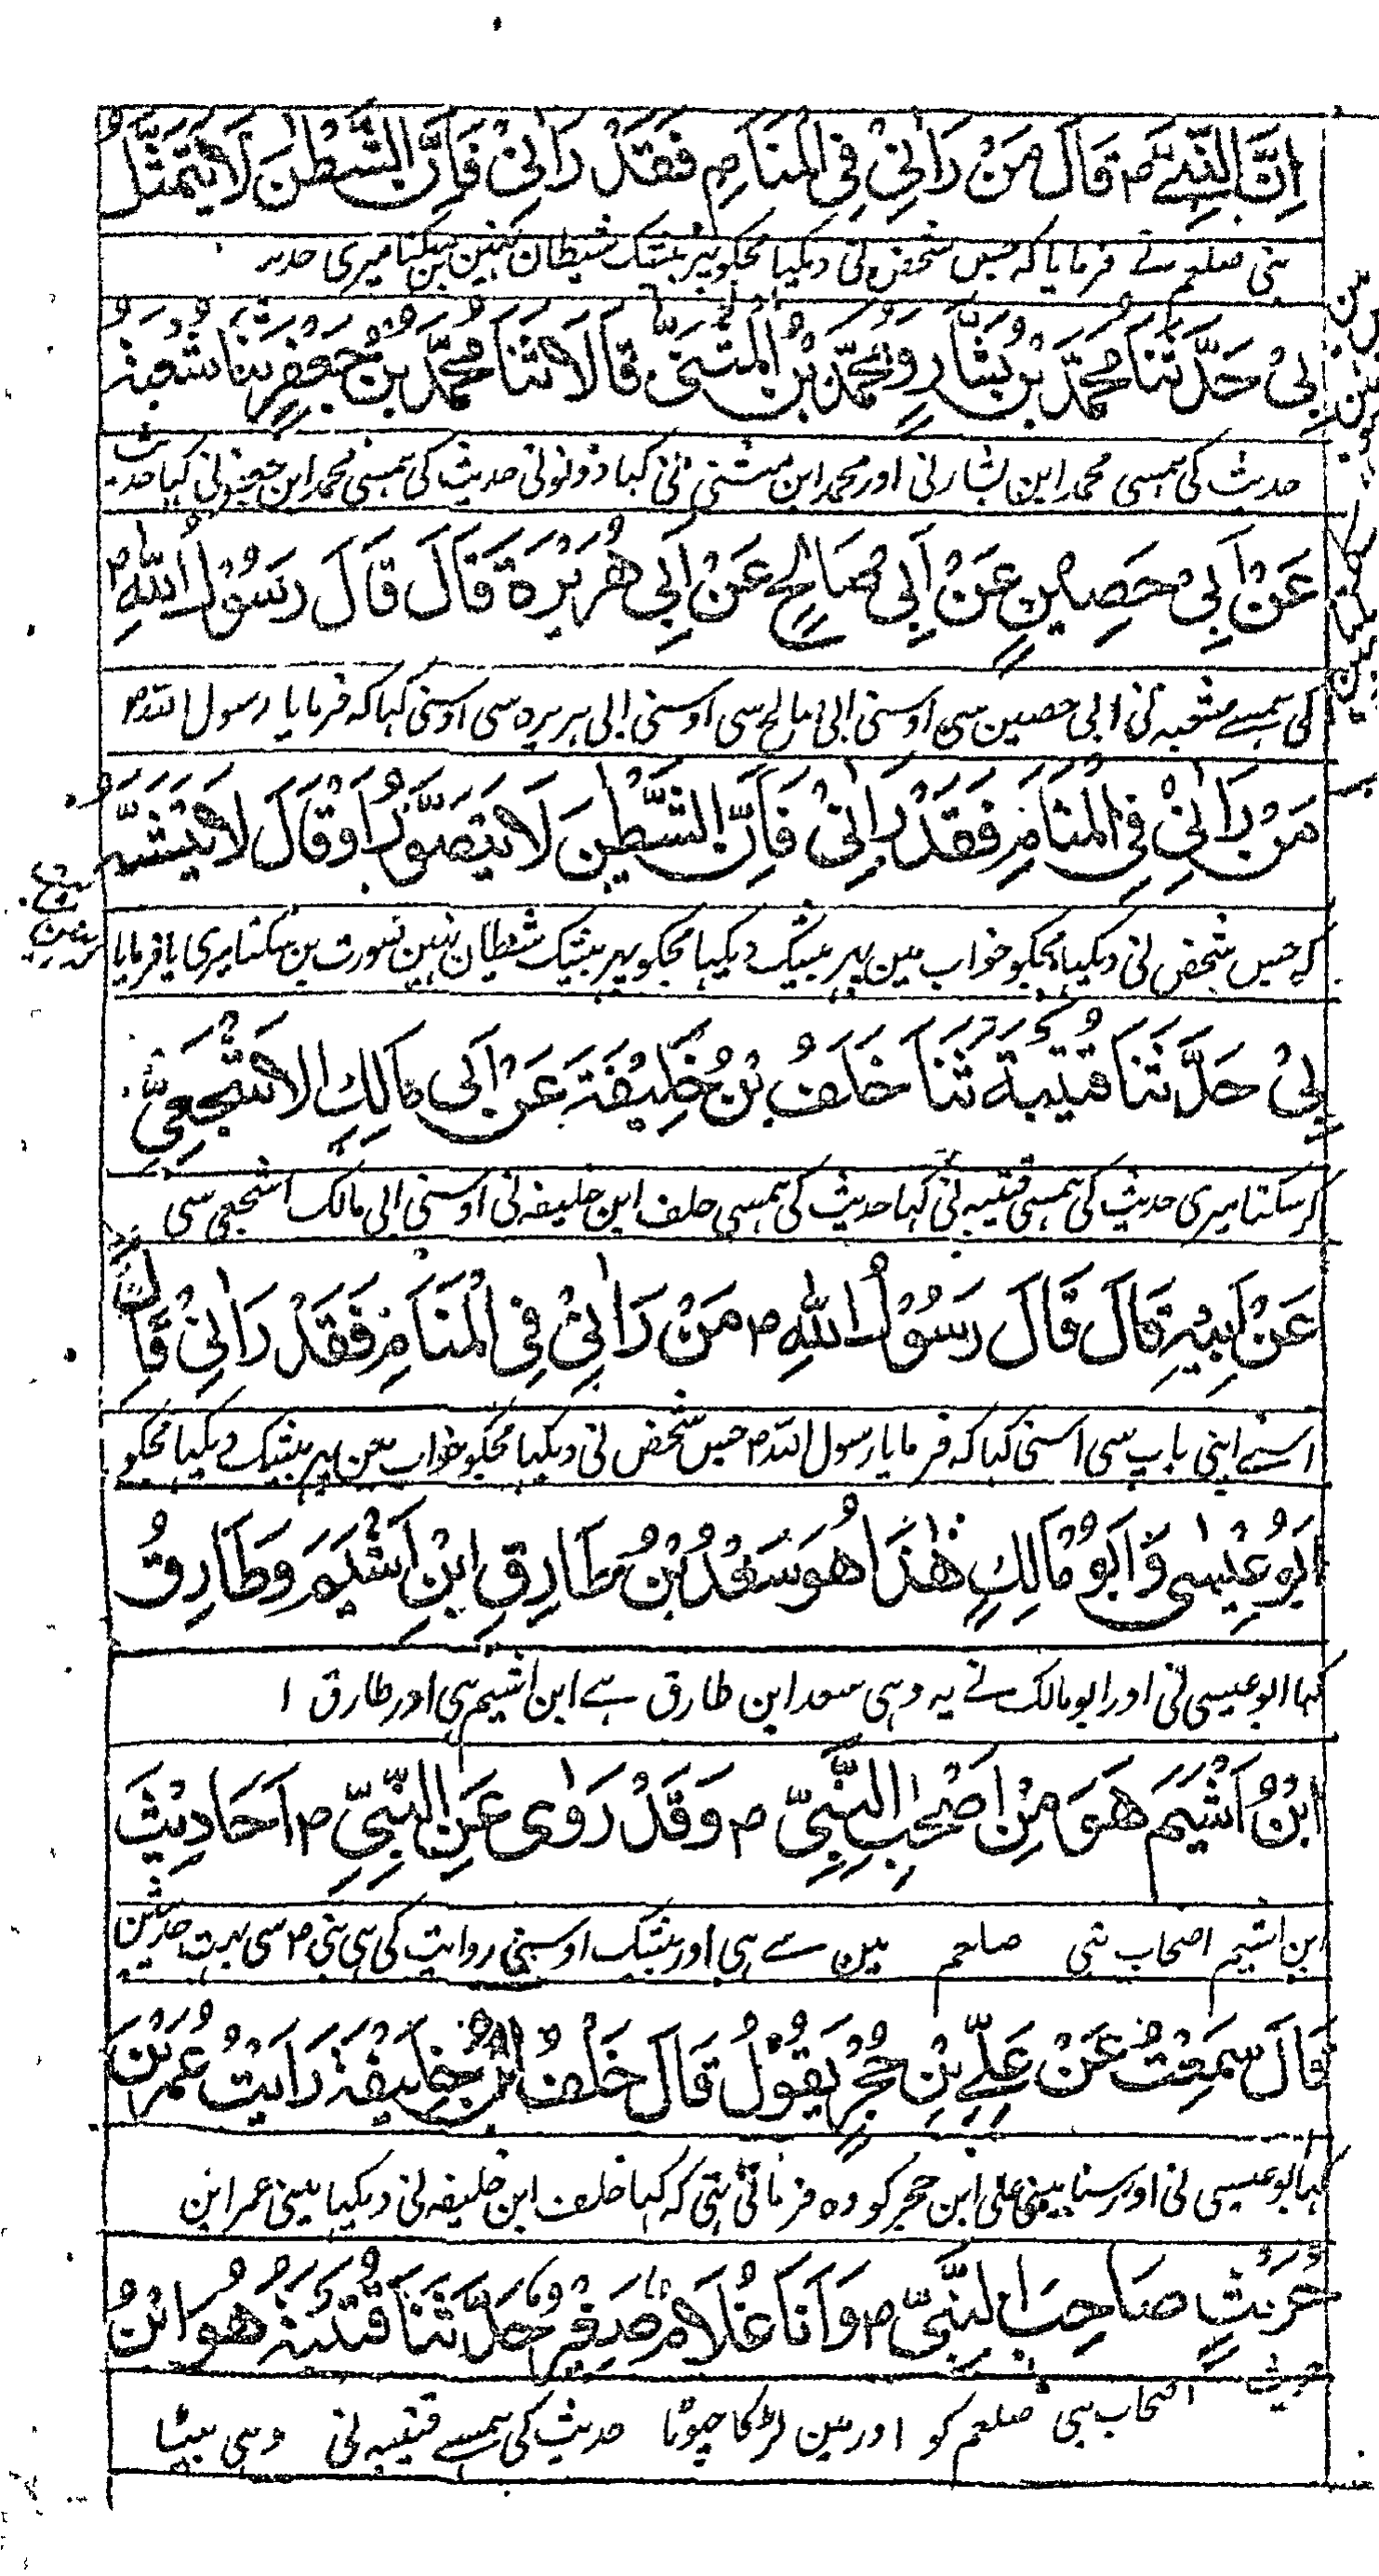 اِنَّ النَّبِیَّ ؐ قَالَ مَنْ رَاٰنِیْ فِی الْمَنَامِ فَقَدْ رَاٰنِیْ فَاِنَّ الشَّیْطٰنَ لَا یَتَمَثَّلُ
نبی صلعم نے فرمایا کہ جس شخص نی دیکہا مجکو پہر بیشک شیطان نہین بن سکتا میری
بِیْ حَدَّثَنَا مُحَمَّدُ بْنُ بَشَّارٍ وَمُحَمَّدُ بْنُ الْمُثَنّٰی قَالَا ثَنَا مُحَمَّدُ بْنُ جَعْفَرٍ ثَنَا شُعْبَةُ
حدیث کی ہمسی محمد ابن بشار نی اور محمد ابن مثنی نی کہا دونونی حدیث کی ہمسی محمد ابن جعفر نی کہا حدیث
عَنْ اَبِیْ حَصِیْنٍ عَنْ اَبِیْ صَالِحٍ عَنْ اَبِیْ هُرَیْرَةَ قَالَ قَالَ رَسُوْلُ اللّٰهِ ؐ
کی ہمسے شعبہ نی ابی حصین سی اوسنی ابی صالح سی اوسنی ابی ہریرہ سی اوسنی کہا کہ فرمایا رسول اللہ ؐ
مَنْ رَاٰنِیْ فِی الْمَنَامِ فَقَدْ رَاٰنِیْ فَاِنَّ الشَّیْطٰنَ لَا یَتَصَوَّرُ اَوْ قَالَ لَا یَتَشَبَّهُ
کہ جس شخص نی دیکہا مجکو خواب مین پہر بیشک دیکہا مجکو پہر بیشک شیطان نہین صورت بن سکتا میری یا فرمایا
بِیْ حَدَّثَنَا قُتَیْبَةُ ثَنَا خَلَفُ بْنُ خَلِیْفَةَ عَنْ اَبِی مَالِكِ الْاَشْجَعِیِّ
کر سکتا میری حدیث کی ہمسی قتیبہ نی کہا حدیث کی ہمسی خلف ابن خلیفہ نی اوسنی ابی مالک اشجعی سی
عَنْ اَبِیْهِ قَالَ قَالَ رَسُوْلُ اللّٰهِ ؐ مَنْ رَاٰنِیْ فِی الْمَنَامِ فَقَدْ رَاٰنِیْ قَالَ
اسنے اپنی باپ سی اسنی کہا کہ فرمایا رسول اللہ ؐ جس شخص نی دیکہا مجکو خواب مین پہر بیشک دیکہا مجکو
اَبُوْ عِیْسٰی وَاَبُوْ مَالِكٍ هٰذَا هُوَ سَعْدُ بْنُ طَارِقِ ابْنِ اَشْیَمَ وَطَارِقُ
کہا ابو عیسی نی اور ابو مالک نے یہ وہی سعد ابن طارق ہے ابن اشیم ہی اور طارق
ابْنُ اَشْیَمَ هُوَ مِنْ اَصْحٰبِ النَّبِیِّ ؐ وَقَدْ رَوٰی عَنِ النَّبِیِّ ؐ اَحَادِیْثَ
ابن اشیم اصحاب نبی صلعم مین سے ہی اور بیشک اوسنی روایت کی ہی نبی ؐ سی بہت حدیثین
قَالَ سَمِعْتُ عَنْ عَلِیِّ بْنِ حُجْرٍ یَقُوْلُ قَالَ خَلَفُ ابْنُ خَلِیْفَةَ رَاَیْتُ عَمْرَ بْنَ
کہا ابو عیسی نی اور سنا مینی علی ابن حجر کو وہ فرماتی تہی کہ کہا خلف ابن خلیفہ نی دیکہا مینی عمر ابن
حُرَیْثٍ صَاحِبَ النَّبِیِّ ؐ وَاَنَا غُلَامٌ صَغِیْرٌ حَدَّثَنَا قُتَیْبَةُ هُوَ ابْنُ
حریث اصحاب نبی صلعم کو اور مین لڑکا چہوٹا حدیث کی ہمسے قتیبہ نی وہی بیٹا